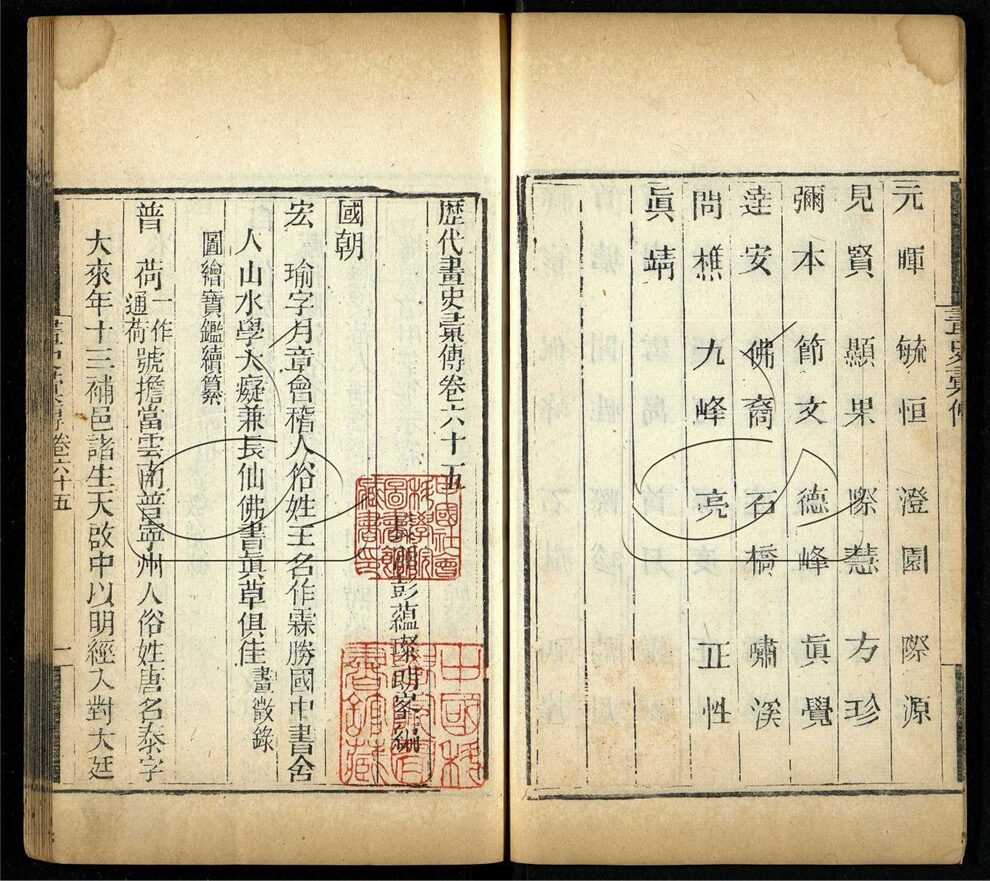 畫史彙傳
元暉 毓恒 澄園 際源
見賢 顯果 際慧 方珍
彌本 節文 德峰 眞覺
達安 佛裔 石橋 嘯溪
問樵 九峰 亮 正性
眞靖
歷代畫史彙傳卷六十五
長洲彭蘊璨朗峯編
中國社會
科學院
圖書館
藏書印
中國科
國朝
宏瑜字月章會稽人俗姓王名作霖勝國中書舍
人山水學大癡兼長仙佛書眞草俱佳畫徵錄
圖繪寶鑑續纂
普荷一作通荷號擔當雲南普寧州人俗姓唐名泰字
大來年十三補邑諸生天啟中以明經入對大廷
畫史彙傳卷六十五 一